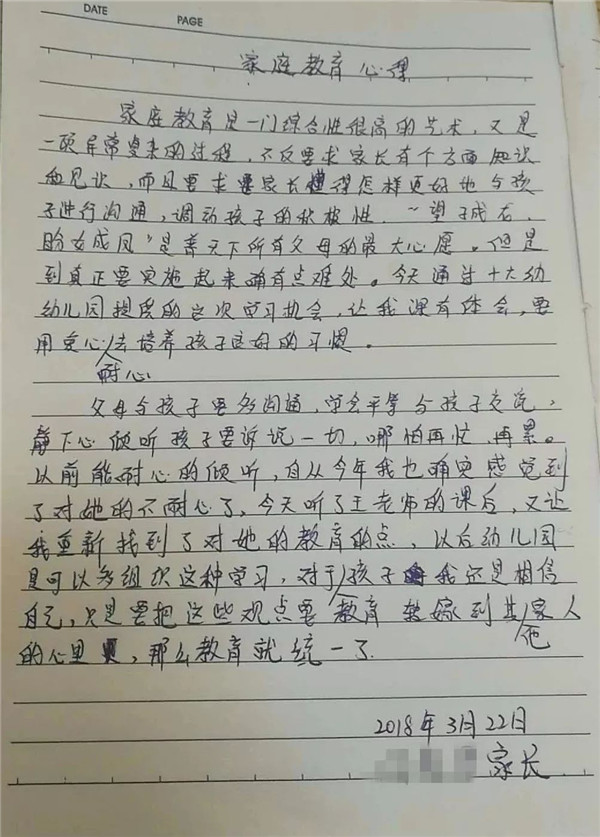 DATE
PAGE
家庭教育心得
家庭教育是一门综合性很高的艺术,又是
一项异常复杂的过程,不仅要求家长有个方面知识
和见识,而且要求要家长懂得怎样更好地与孩
子进行沟通,调动孩子的积极性.“望子成龙.
盼女成凤”是普天下所有父母的最大心愿。但是
到真正要实施起来确有点难处。今天通过十大幼
幼儿园提供的这次学习机会,让我深有体会,要
用爱心去培养孩子良好的习惯。
耐心
父母与孩子要多沟通,学会平等与孩子交流,
静下心倾听孩子要诉说一切,哪怕再忙.再累。
以前能耐心的倾听,自从今年我也确实感觉到
了对她的不耐心了,今天听了王老师的课后,又让
我重新找到了对她的教育的点,以后幼儿园
是可以多组织这种学习,对于孩子 我还是相信
自己,只是要把这些观点要教育转嫁到其家人
教 他
的心里,那么教育就统一了.
2018年3月22日
家长